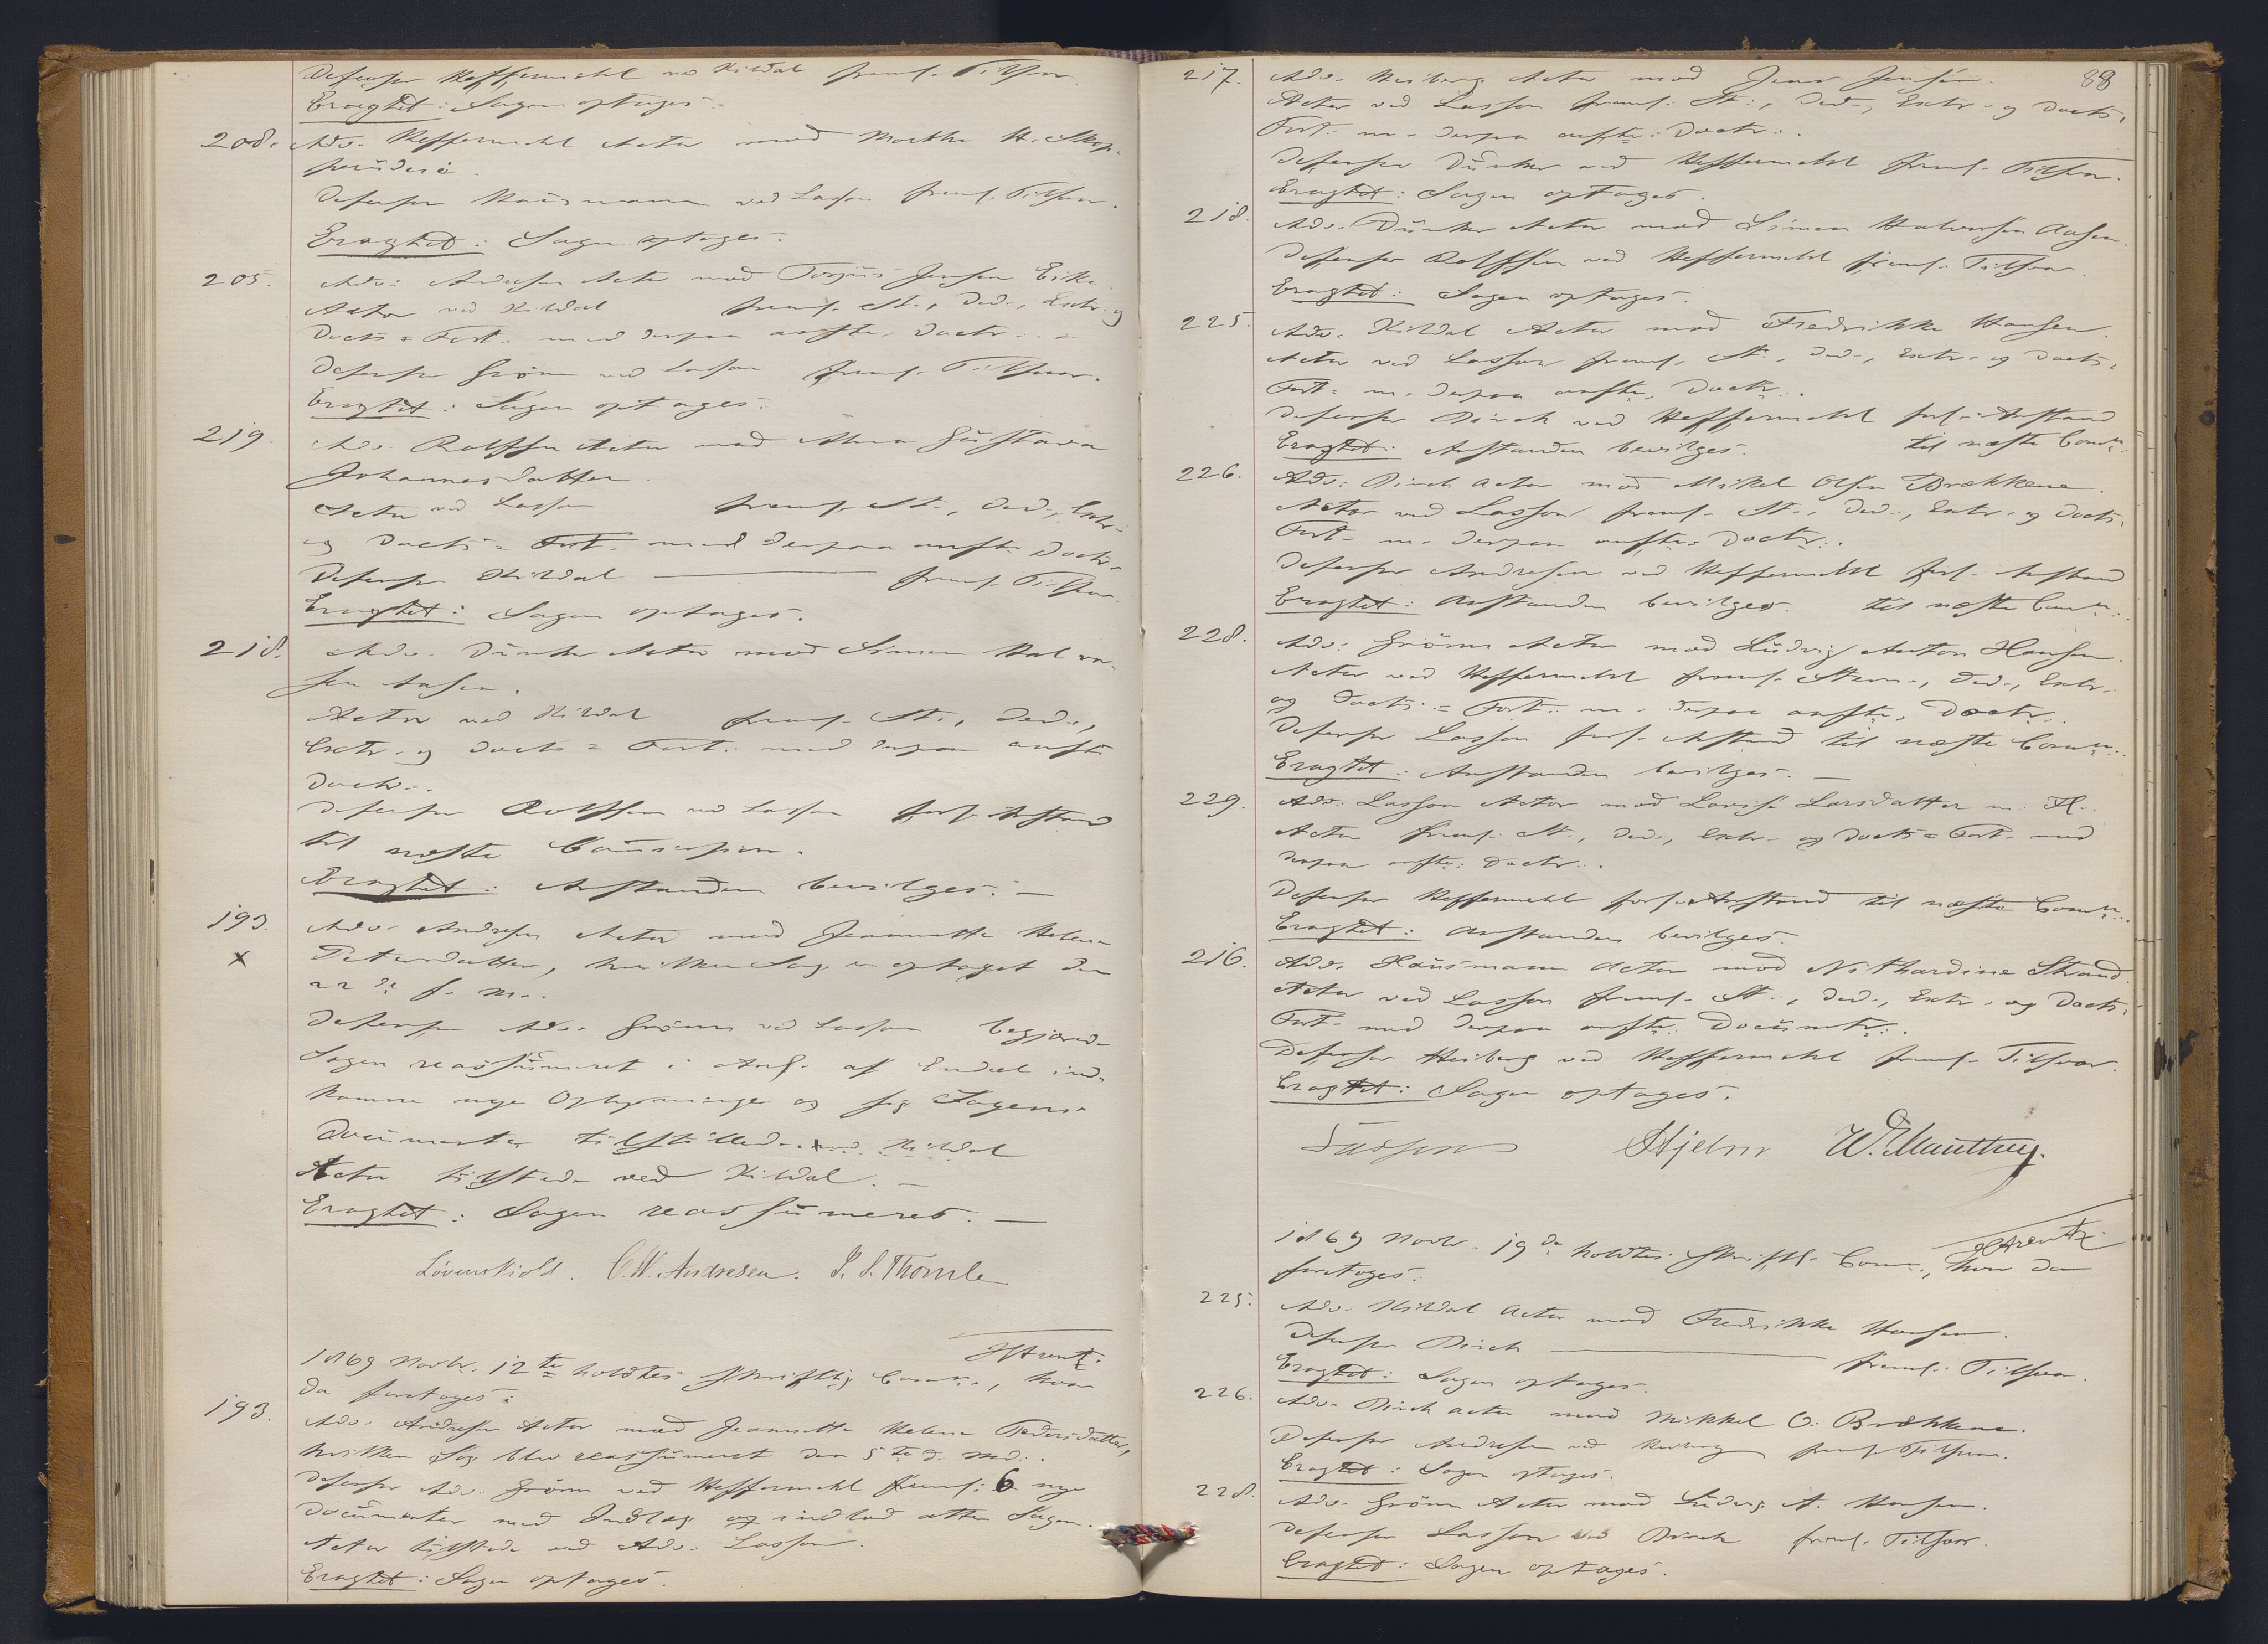 Defensor Heffermehl ved Kildal freml. Tilsvar.
Eragtet: Sagen optages.
208. Adv. Heffermehl Actor mod Marthe H.
Defensor Hausmann ved Lasson freml. Tilsvar.
Eragtet: Sagen optages.
205. Adv: Andresen Actor mod Torjus Jensen Eike
Actor ved Kildal freml. St., Ded., Extr. og
Docts = Fort. med derpaa anfte. Doctr. -
Defensor Grönn ved Lasson freml. Tilsvar.
Eragtet: Sagen optages.
219. Adv. Rolffsen Actor mod Anna Gustava
Johannesdatter.
Actor ved Lasson freml. St., Ded., Extr.
og Docts = Fort. med derpaa anfte. Doctr.
Defensor Kildal freml. Tilsvar.
Eragtet: Sagen optages.
218. Adv. Dunker Actor mod Simen Halvor-
sen Aasen.
Actor ved Kildal freml. St., Ded.,
Extr. og Docts = Fort. med derpaa anfte
Doctr..
Defensor Rolffsen ved Lasson forl. Anstand
til næste Commission.
Eragtet: Anstanden bevilges. —
193. Adv. Andresen Actor mod Jeannette Helene
x Petersdatter, hvilken Sag er optaget den
22de f. M..
Defensor Adv. Grönn ved Lasson begjærede
Sagen reassumeret i Anl. af Endel ind-
komne nye Oplysninger og sig Sagens
Documenter tilstillede. ved Kildal
Actor tilstede ved Kildal. —
Eragtet: Sagen reassumeres. —
Lövenskiold. C.N. Andresen. Thomle
HArentz.
1869 Novbr. 12te holdtes skriftlig Comn., hvor
da foretoges:
193. Adv. Andresen Actor mod Jeannette Helene Pedersdatter,
hvilken Sag blev reassumeret den 5te d. Md..
Defensor Adv. Grönn ved Heffermehl freml: 6 nye
Documenter med Indlæg og indlod atter Sagen.
Actor tilstede ved Adv. Lasson.
Eragtet: Sagen optages.
88
217. Adv. Heiberg Actor mod Jens Jensen.
Actor ved Lasson freml. St., Ded., Extr. og Docts.
Fort. m. derpaa anfte. Doctr..
Defensor Dunker ved Heffermehl freml. Tilsvar.
Eragtet: Sagen optages.
218. Adv. Dunker Actor mod Simen Halvorsen Aasen.
Defensor Rolffsen ved Heffermehl freml. Tilsvar.
Eragtet: Sagen optages.
225. Adv. Kildal Actor mod Fredrikke Hansen.
Actor ved Lasson freml. St., Ded., Extr. og Docts.
Fort. m. derpaa anfte. Doctr..
Defensor Birch ved Heffermehl forl. Anstand
Eragtet: Anstanden bevilges. til næste Comn.
226. Adv. Birch Actor mod Mikel Olsen Brækkene.
Actor ved Lasson freml. St., Ded., Extr. og Docts.
Fort. m. derpaa anfte. Doctr..
Defensor Andresen ved Heffermehl forl. Anstand
Eragtet: Anstanden bevilges. til næste Comn.
228. Adv. Grönn Actor mod Ludvig Anton Hansen.
Actor ved Heffermehl freml. Stevn., Ded., Extr.
og Docts. = Fort. m. derpaa anfte. Doctr..
Defensor Lasson forl. Anstand til næste Comn..
Eragtet: Anstanden bevilges. —
229. Adv. Lasson Actor mod Lovise Larsdatter m. Fl.
Actor freml. St., Ded., Extr. og Docts = Fort. med
derpaa anfte. Doctr..
Defensor Heffermehl forl. Anstand til næste Comn..
Eragtet: Anstanden bevilges.
216. Adv. Hausmann Actor mod Nithardine Strand.
Actor ved Lasson freml. St., Ded., Extr. og Docts.
Fort. med derpaa anfte. Documtr..
Defensor Heiberg ved Heffermehl freml. Tilsvar.
Eragtet: Sagen optages.
Hjelm W. Manthey.
HArentz.
1869 Novbr. 19de holdtes skriftl. Comn., hvor da
foretoges:
225. Adv. Kildal Actor mod Fredrikke Hansen.
Defensor Birch freml. Tilsvar.
Eragtet: Sagen optages.
226. Adv. Birch Actor mod Mikkel O. Brækkene.
Defensor Andresen ved Heiberg freml. Tilsvar.
Eragtet: Sagen optages.
228. Adv. Grönn Actor mod Ludvig A. Hansen.
Defensor Lasson ved Birch freml. Tilsvar.
Eragtet: Sagen optages.